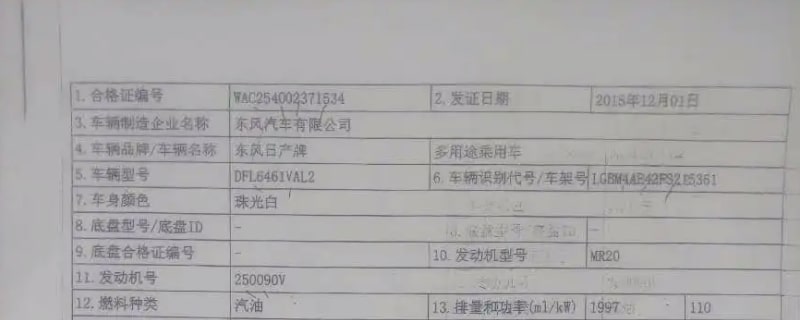 1. 合格证编号 WAC254002371534 2. 发证日期 2015年12月01日
3. 车辆制造企业名称 东风汽车有限公司
4. 车辆品牌/车辆名称 东风日产牌 多用途乘用车
5. 车辆型号 DFL6461VAL2 6. 车辆识别代号/车架号
7. 车身颜色 珠光白
8. 底盘型号/底盘ID - -
9. 底盘合格证编号 - 10. 发动机型号 MR20
11. 发动机号 250090V
12. 燃料种类 汽油 13. 排量和功率(ml/kW) 1997 110